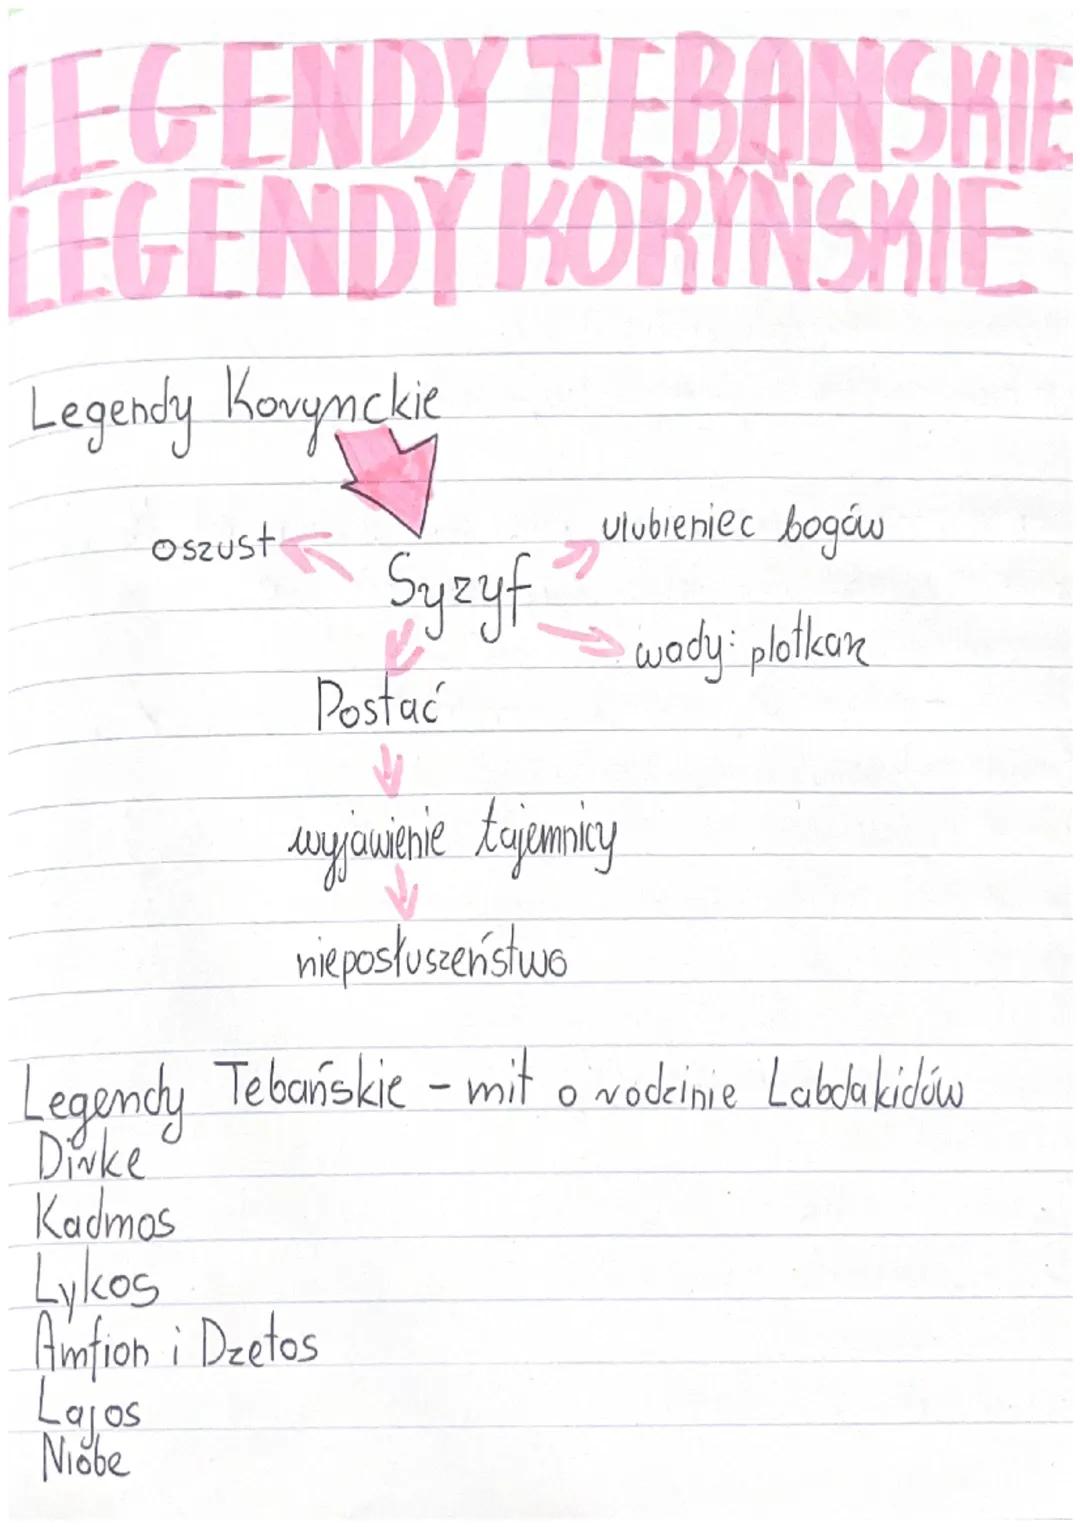 LEGENDY TEBAŃSKIE
LEGENDY KORYŃSKIE
Legendy Korynckie
oszust
ulubieniec bogów
Syzyf
wady: plotkarz
Postać
wyjawienie tajemnicy
nieposłuszeństwo
Legendy Tebańskie - mit o rodzinie Labdakidów
Dirke
Kadmos
Lykos
Amfion i Dzetos
Lajos
Niobe